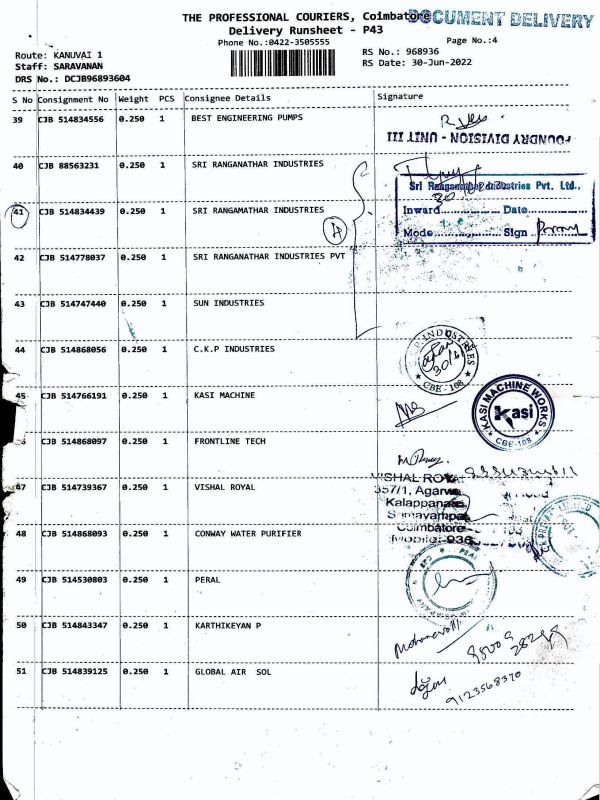 THE PROFESSIONAL COURIERS, Coimbatore
DOCUMENT DELIVERY
Delivery Runsheet - P43
Phone No.:0422-3505555
Page No.:4
Route: KANUVAI 1
RS No.: 968936
Staff: SARAVANAN
RS Date: 30-Jun-2022
DRS No.: DCJB96893604
S No Consignment No Weight PCS Consignee Details Signature
39 CJB 514834556 0.250 1 BEST ENGINEERING PUMPS
FOUNDRY DIVISION - UNIT III
40 CJB 88563231 0.250 1 SRI RANGANATHAR INDUSTRIES
Sri Ranganathar Industries Pvt. Ltd.,
41 CJB 514834439 0.250 1 SRI RANGAMATHAR INDUSTRIES
Inward Date
Mode Sign
42 CJB 514778037 0.250 1 SRI RANGANATHAR INDUSTRIES PVT
43 CJB 514747440 0.250 1 SUN INDUSTRIES
44 CJB 514868056 0.250 1 C.K.P INDUSTRIES
INDUSTRIES
30/6
CBE - 108
45 CJB 514766191 0.250 1 KASI MACHINE
KASI MACHINE WORKS
Kasi
CBE-108
CJB 514868097 0.250 1 FRONTLINE TECH
47 CJB 514739367 0.250 1 VISHAL ROYAL
VISHAL ROYAL
357/1,
Coimbatore
48 CJB 514868093 0.250 1 CONWAY WATER PURIFIER
49 CJB 514530803 0.250 1 PERAL
50 CJB 514843347 0.250 1 KARTHIKEYAN P
51 CJB 514839125 0.250 1 GLOBAL AIR SOL
9123568370